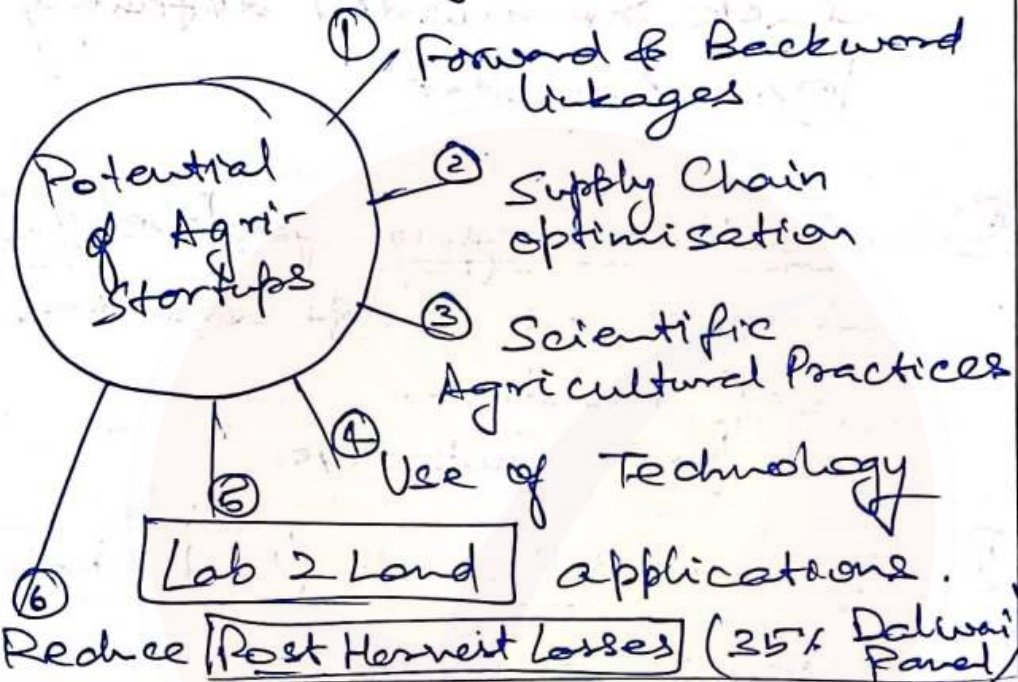 Potential
of Agri-
Startups
① Forward & Backward
linkages
② Supply Chain
optimisation
③ Scientific
Agricultural Practices
④ Use of Technology
⑤ Lab 2 Land applications.
⑥ Reduce Post Harvest Losses (35% Dalwai
Panel)